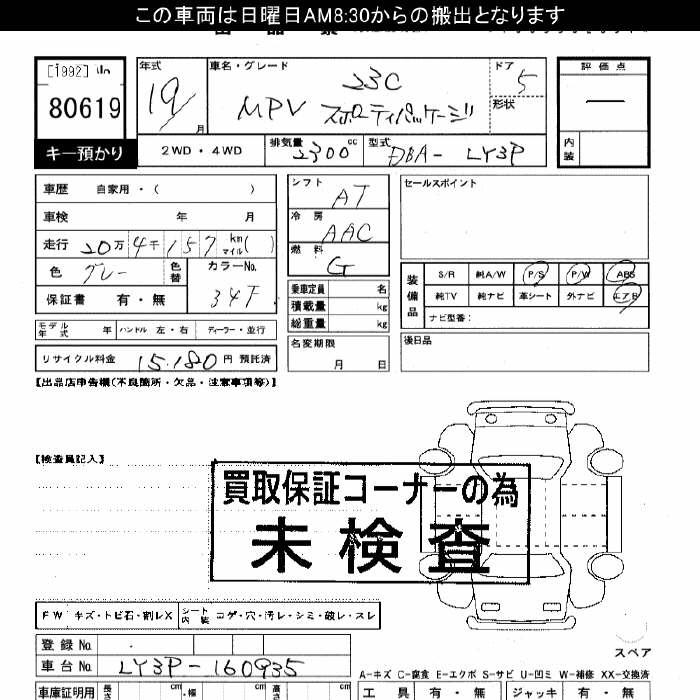 この車両は日曜日AM8:30からの搬出となります
[1992]
80619
キー預かり
年式
19
月
車名・グレード
23C
MPV スポーティパッケージ
ドア
5
形状
評価点
一
内装
2WD・4WD
排気量
2300
cc
型式
DBA- LY3P
車歴 自家用・( )
車検 年 月
走行 20万 4千 157 km マイル ( )
色 グレー
色替
カラーNo.
34F
保証書 有・無
モデル年式 年
ハンドル 左・右
ディーラー・並行
リサイクル料金 15.180 円 預託済
シフト
AT
冷房
AAC
燃料
G
乗車定員 名
積載量 kg
総重量 kg
名変期限
月 日
セールスポイント
装備品
S/R 純A/W P/S P/W ABS
純TV 純ナビ 革シート 外ナビ エアB
ナビ型番:
後日品
【出品店申告欄(不良箇所・欠品・注意事項等)】
【検査員記入】
買取保証コーナーの為
未検査
FW キズ・トビ石・割レX
シート内装 コゲ・穴・汚レ・シミ・破レ・スレ
スペア
登録No.
車台No. LY3P-160935
A-キズ C-腐食 E-エクボ S-サビ U-凹ミ W-補修 XX-交換済
車庫証明用 長さ cm 幅 cm 高さ cm
工具 有・無 ジャッキ 有・無